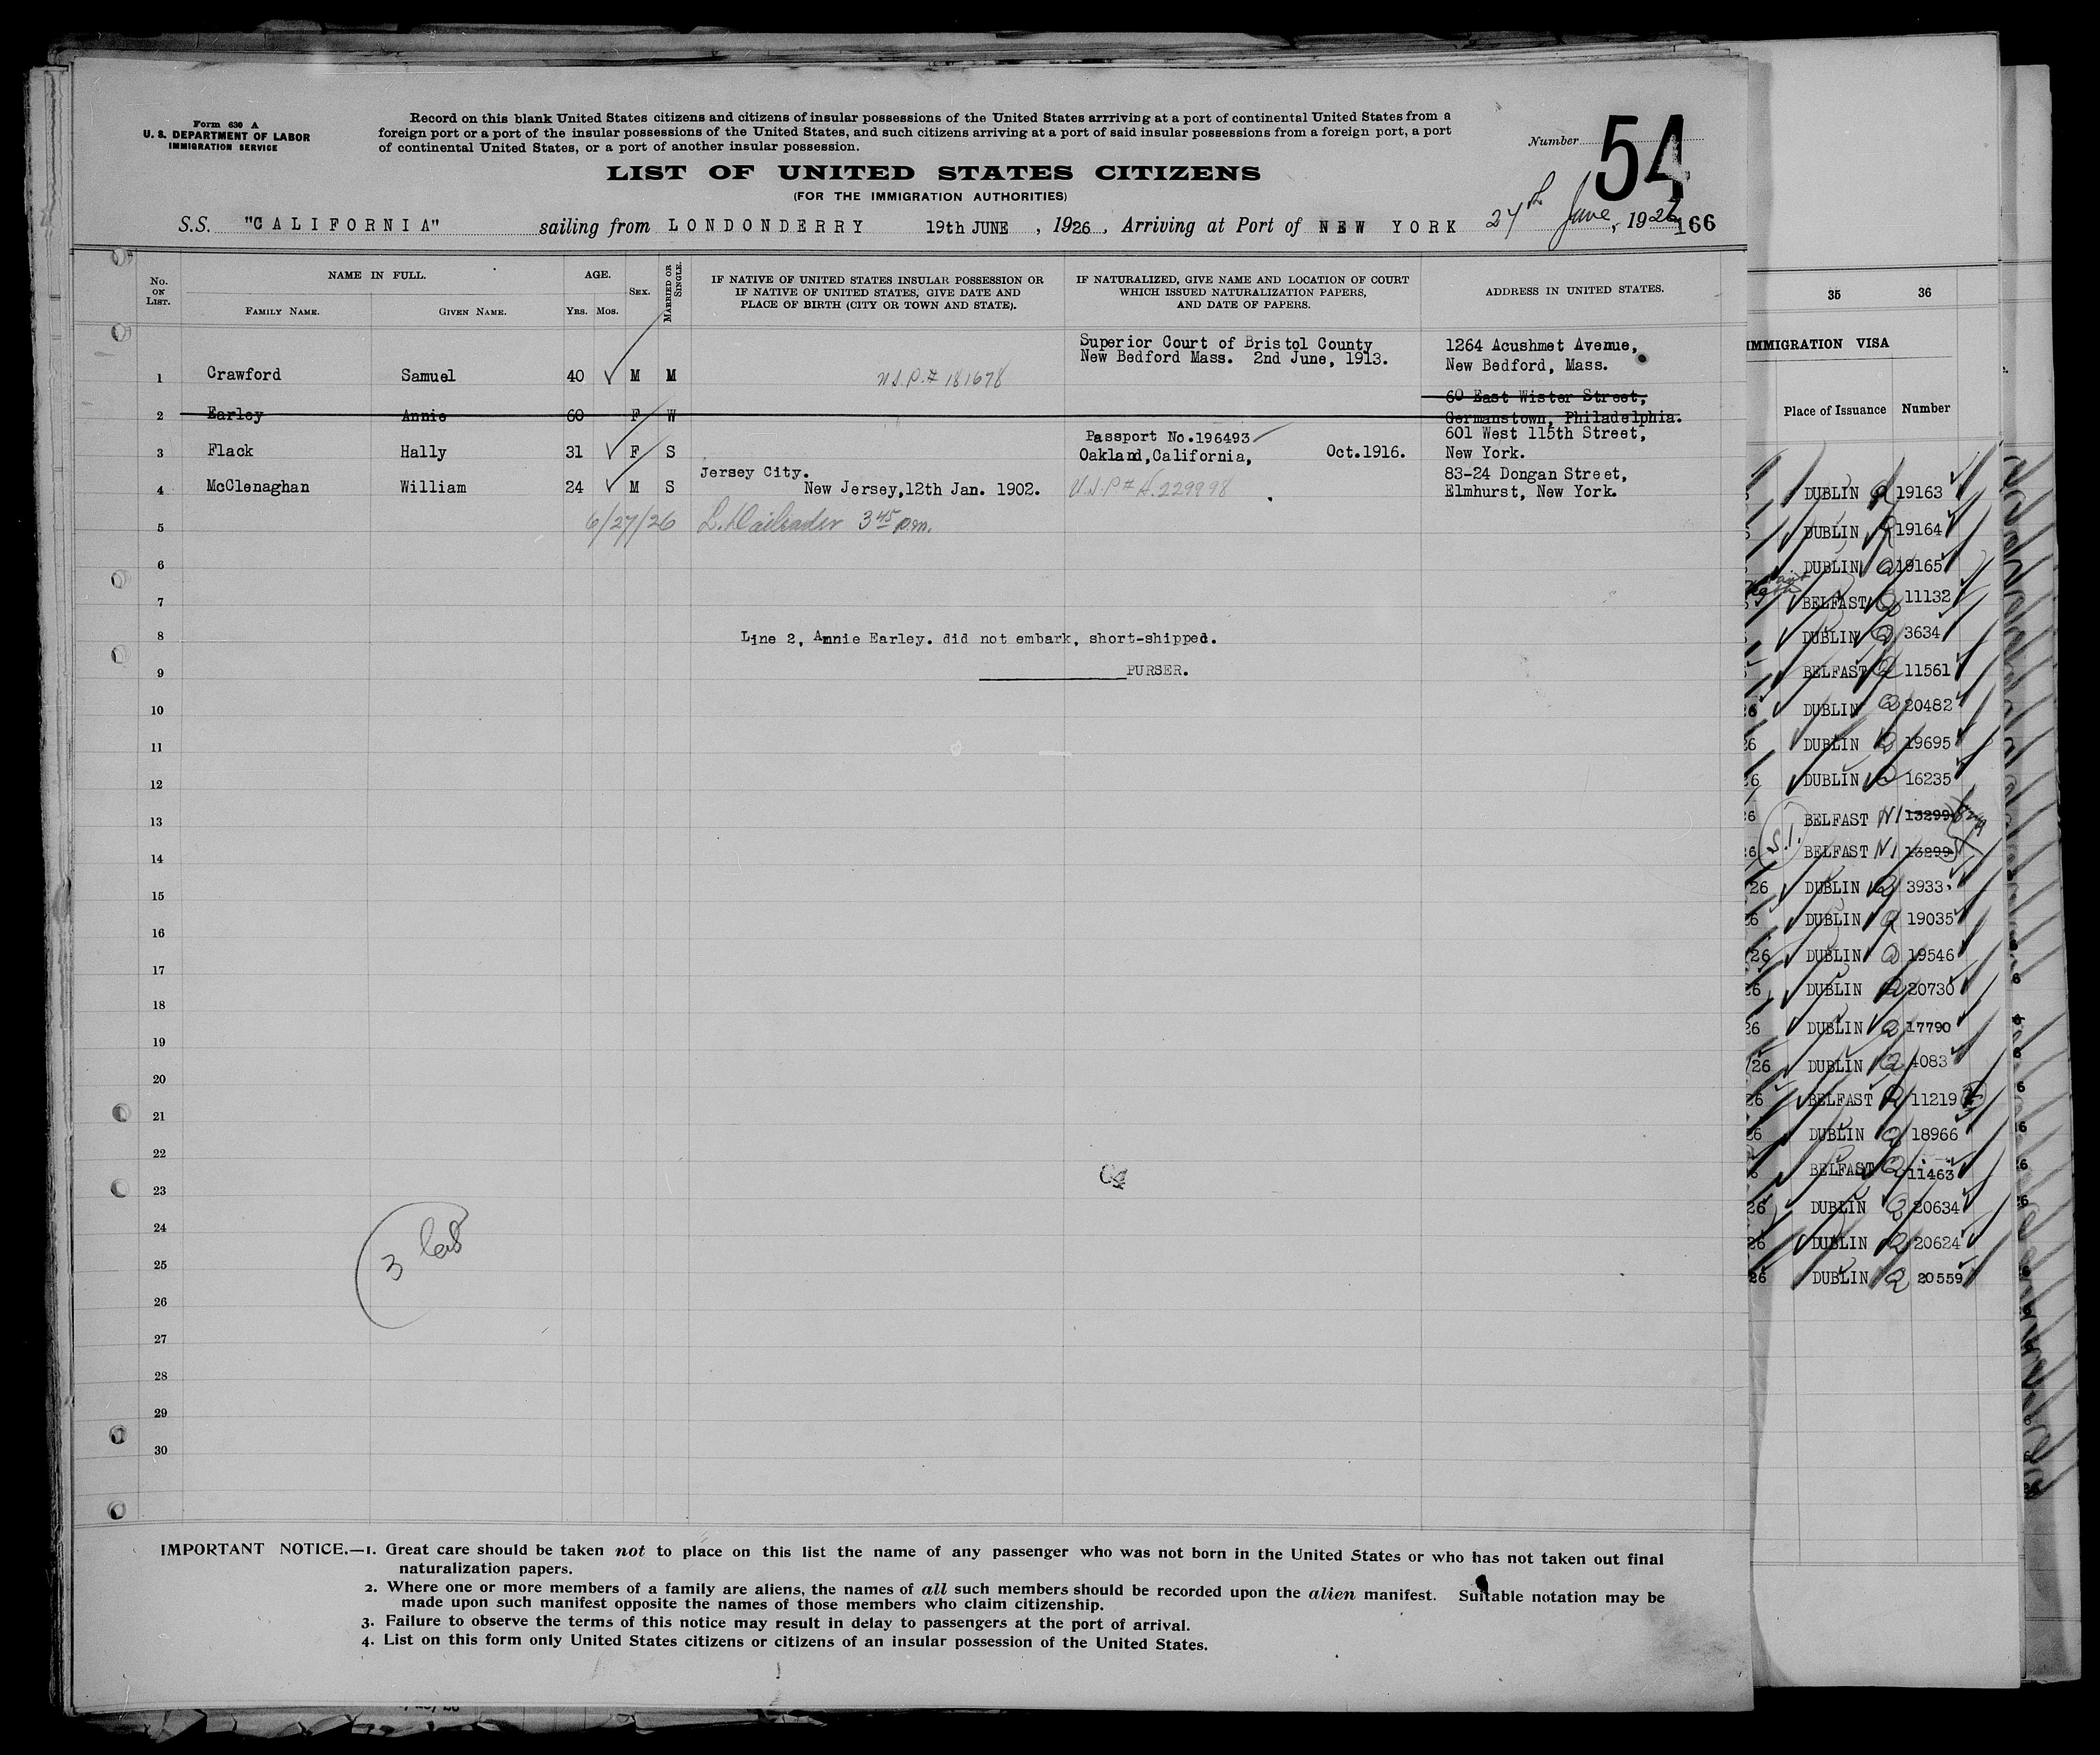 Form 630 A
U. S. DEPARTMENT OF LABOR
IMMIGRATION SERVICE
Record on this blank United States citizens and citizens of insular possessions of the United States arrriving at a port of continental United States from a
foreign port or a port of the insular possessions of the United States, and such citizens arriving at a port of said insular possessions from a foreign port, a port
of continental United States, or a port of another insular possession.
Number 54
LIST OF UNITED STATES CITIZENS
(FOR THE IMMIGRATION AUTHORITIES)
S.S. "CALIFORNIA" sailing from LONDONDERRY 19th JUNE , 1926 , Arriving at Port of NEW YORK 27th June, 1926
166
No. ON LIST.
NAME IN FULL.
FAMILY NAME. GIVEN NAME.
AGE.
Yrs. Mos.
SEX.
MARRIED OR SINGLE.
IF NATIVE OF UNITED STATES INSULAR POSSESSION OR
IF NATIVE OF UNITED STATES, GIVE DATE AND
PLACE OF BIRTH (CITY OR TOWN AND STATE).
IF NATURALIZED, GIVE NAME AND LOCATION OF COURT
WHICH ISSUED NATURALIZATION PAPERS,
AND DATE OF PAPERS.
ADDRESS IN UNITED STATES.
Superior Court of Bristol County
New Bedford Mass. 2nd June, 1913.
1264 Acushmet Avenue,
New Bedford, Mass.
1 Crawford Samuel 40 M M U.S.P.# 181678
60 East Wister Street,
2 Earley Annie 60 F W Germanstown, Philadelphia.
Passport No.196493 601 West 115th Street,
3 Flack Hally 31 F S Oakland,California, Oct.1916. New York.
Jersey City. 83-24 Dongan Street,
4 McClenaghan William 24 M S New Jersey,12th Jan. 1902. U.S.P # A.229998 Elmhurst, New York.
5 6/27/26 3 45 p.m.
6
7
8 Line 2, Annie Earley. did not embark, short-shipped.
9 PURSER.
10
11
12
13
14
15
16
17
18
19
20
21
22
23
24
25
26
27
28
29
30
3
IMPORTANT NOTICE.—1. Great care should be taken not to place on this list the name of any passenger who was not born in the United States or who has not taken out final
naturalization papers.
2. Where one or more members of a family are aliens, the names of all such members should be recorded upon the alien manifest. Suitable notation may be
made upon such manifest opposite the names of those members who claim citizenship.
3. Failure to observe the terms of this notice may result in delay to passengers at the port of arrival.
4. List on this form only United States citizens or citizens of an insular possession of the United States.
35 36
IMMIGRATION VISA
Place of Issuance Number
DUBLIN 19163
DUBLIN 19164
DUBLIN 19165
BELFAST 11132
DUBLIN 3634
BELFAST 11561
DUBLIN 20482
DUBLIN 19695
DUBLIN 16235
BELFAST 13299
S.I.
BELFAST 13299
DUBLIN 3933
DUBLIN 19035
DUBLIN 19546
DUBLIN 20730
DUBLIN 17790
DUBLIN 4083
BELFAST 11219
DUBLIN 18966
BELFAST 11463
DUBLIN 20634
DUBLIN 20624
DUBLIN 20559